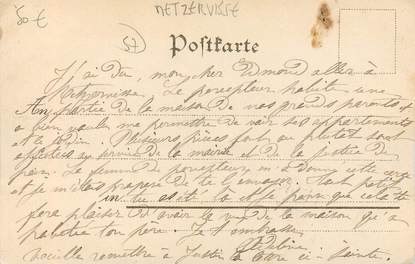 50 €
METZERVISSE
57
Postkarte
J'ai du, mon cher Edmond aller à
Metzervisse. Le percepteur habite une
partie de la maison de nos grands parents et
a bien voulu me permettre de voir ses appartements
et le jardin. Plusieurs pièces sont ou plutôt sont
affectées au service de la mairie et de la justice de
paix. La femme du percepteur m'a donné cette carte
et je m'étais proposé de te l'envoyer.
in tu as été là et je pense que cela te
fera plaisir d'avoir la vue de la maison qu'a
habitée ton père. Je t'embrasse
Veuille remettre à Justin la carte ci-jointe.